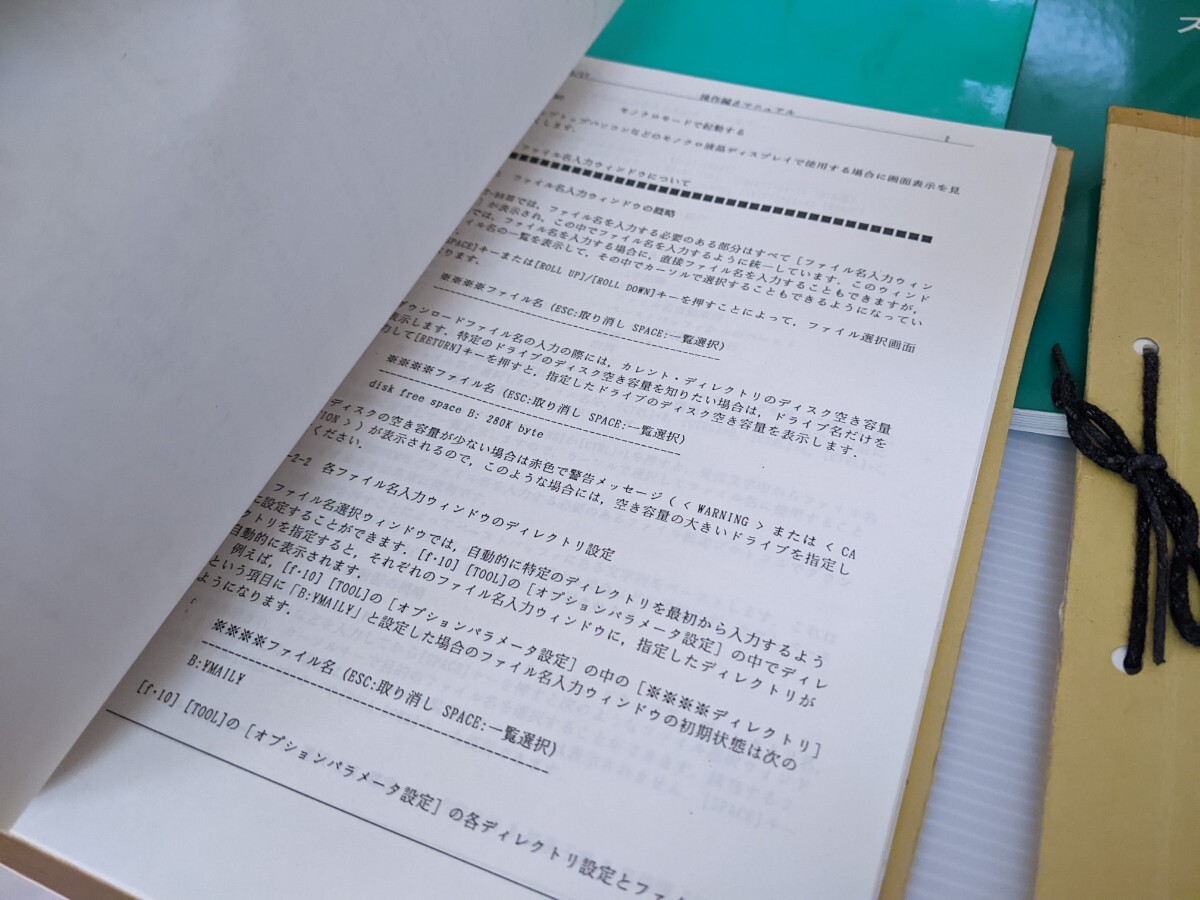 操作編2マニュアル
2
モノクロモードで起動する
プトップパソコンなどのモノクロ液晶ディスプレイで使用する場合に画面表示を見
くします。
ファイル名入力ウィンドウについて
■■■■■■■■■■■■■■■■■■■■■■■■■■■■■■■■■■■■
ファイル名入力ウィンドウの概略
では、ファイル名を入力する必要のある部分はすべて［ファイル名入力ウィン
］が表示され、この中でファイル名を入力するように統一しています。このウィンド
では、ファイル名を入力する場合に、直接ファイル名を入力することもできますが、
イル名の一覧を表示して、その中でカーソルで選択することもできるようになってい
ります。
SPACE]キーまたは[ROLL UP]/[ROLL DOWN]キーを押すことによって、ファイル選択画面
※※※※ファイル名 (ESC:取り消し SPACE:一覧選択)
ダウンロードファイル名の入力の際には、カレント・ディレクトリのディスク空き容量
表示します。特定のドライブのディスク空き容量を知りたい場合は、ドライブ名だけを
力して[RETURN]キーを押すと、指定したドライブのディスク空き容量を表示します。
※※※※ファイル名 (ESC:取り消し SPACE:一覧選択)
disk free space B: 280K byte
ディスクの空き容量が少ない場合は赤色で警告メッセージ（< WARNING > または < CA
ION >）が表示されるので、このような場合には、空き容量の大きいドライブを指定し
ください。
-2-2 各ファイル名入力ウィンドウのディレクトリ設定
ファイル名選択ウィンドウでは、自動的に特定のディレクトリを最初から入力するよう
に設定することができます。[f・10] [TOOL]の［オプションパラメータ設定］の中でディレ
クトリを指定すると、それぞれのファイル名入力ウィンドウに、指定したディレクトリが
自動的に表示されます。
例えば、[f・10] [TOOL]の［オプションパラメータ設定］の中の［※※※※ディレクトリ］
という項目に「B:¥MAIL¥」と設定した場合のファイル名入力ウィンドウの初期状態は次の
ようになります。
※※※※ファイル名 (ESC:取り消し SPACE:一覧選択)
B:¥MAIL¥
[f・10] [TOOL]の［オプションパラメータ設定］の各ディレクトリ設定とファ
ス